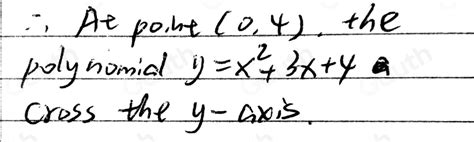 ∴ At point (0,4). the
polynomial y = x²+3x+4
cross the y-axis.